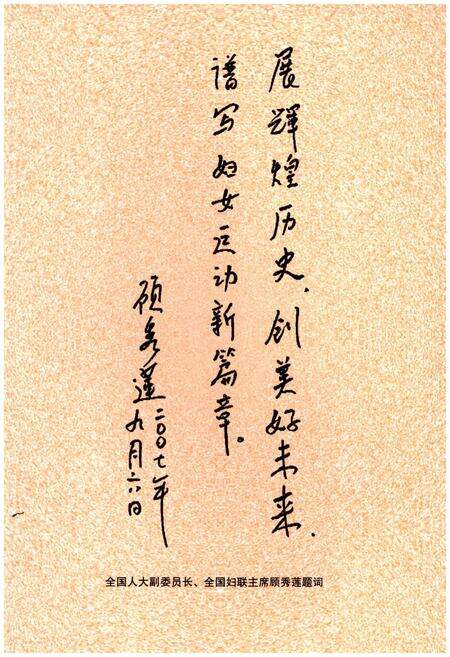 展辉煌历史、创美好未来、
谱写妇女运动新篇章。
顾秀莲二〇〇七年
九月六日
全国人大副委员长、全国妇联主席顾秀莲题词